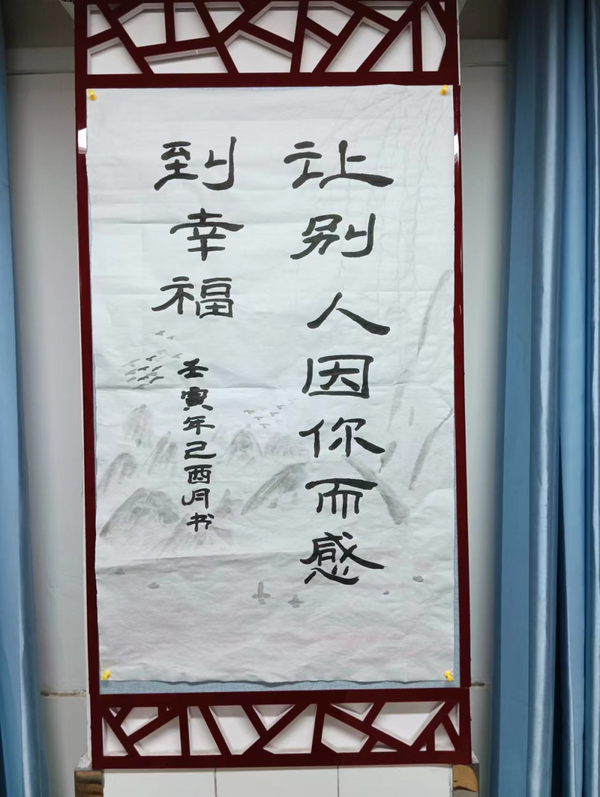 让别人因你而感
到幸福
壬寅年己酉月书